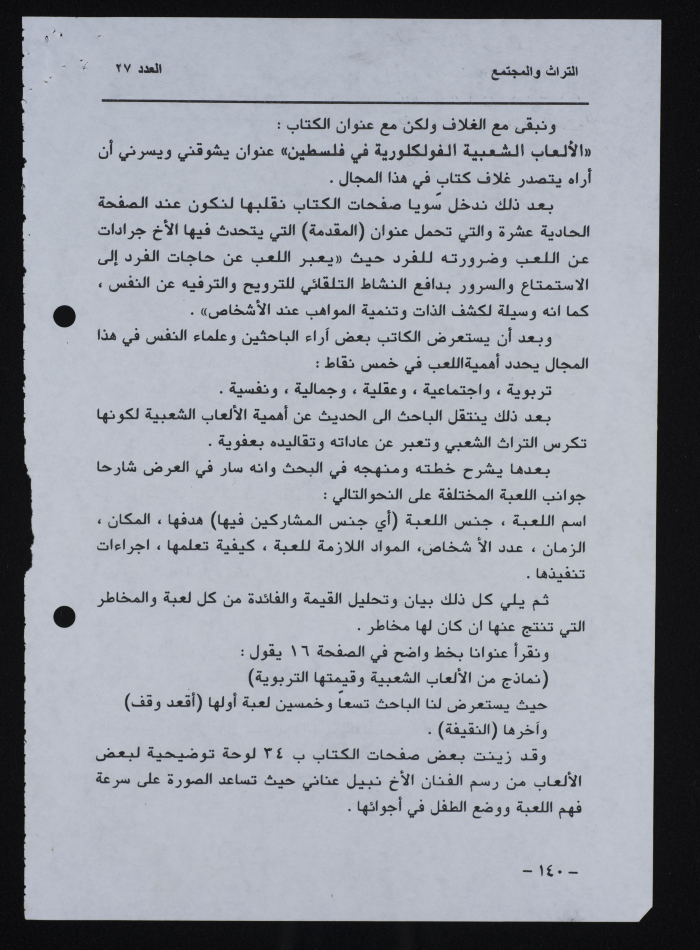 التراث والمجتمع
العدد ٢٧
ونبقى مع الغلاف ولكن مع عنوان الكتاب :
«الألعاب الشعبية الفولكلورية في فلسطين» عنوان يشوقني ويسرني أن
أراه يتصدر غلاف كتاب في هذا المجال .
بعد ذلك ندخل سّويا صفحات الكتاب نقلبها لنكون عند الصفحة
الحادية عشرة والتي تحمل عنوان (المقدمة) التي يتحدث فيها الأخ جرادات
عن اللعب وضرورته للفرد حيث «يعبر اللعب عن حاجات الفرد إلى
الاستمتاع والسرور بدافع النشاط التلقائي للترويح والترفيه عن النفس ،
كما انه وسيلة لكشف الذات وتنمية المواهب عند الأشخاص» .
وبعد أن يستعرض الكاتب بعض آراء الباحثين وعلماء النفس في هذا
المجال يحدد أهميةاللعب في خمس نقاط :
تربوية ، واجتماعية ، وعقلية ، وجمالية ، ونفسية .
بعد ذلك ينتقل الباحث الى الحديث عن أهمية الألعاب الشعبية لكونها
تكرس التراث الشعبي وتعبر عن عاداته وتقاليده بعفوية .
بعدها يشرح خطته ومنهجه في البحث وانه سار في العرض شارحا
جوانب اللعبة المختلفة على النحوالتالي :
اسم اللعبة ، جنس اللعبة (أي جنس المشاركين فيها) هدفها ، المكان ،
الزمان ، عدد الأ شخاص، المواد اللازمة للعبة ، كيفية تعلمها ، اجراءات
تنفيذها .
ثم يلي كل ذلك بيان وتحليل القيمة والفائدة من كل لعبة والمخاطر
التي تنتج عنها ان كان لها مخاطر .
ونقرأ عنوانا بخط واضح في الصفحة ١٦ يقول :
(نماذج من الألعاب الشعبية وقيمتها التربوية)
حيث يستعرض لنا الباحث تسعاً وخمسين لعبة أولها (أقعد وقف)
وآخرها (النقيفة) .
وقد زينت بعض صفحات الكتاب ب ٣٤ لوحة توضيحية لبعض
الألعاب من رسم الفنان الأخ نبيل عناني حيث تساعد الصورة على سرعة
فهم اللعبة ووضع الطفل في أجوائها .
– ١٤٠ –